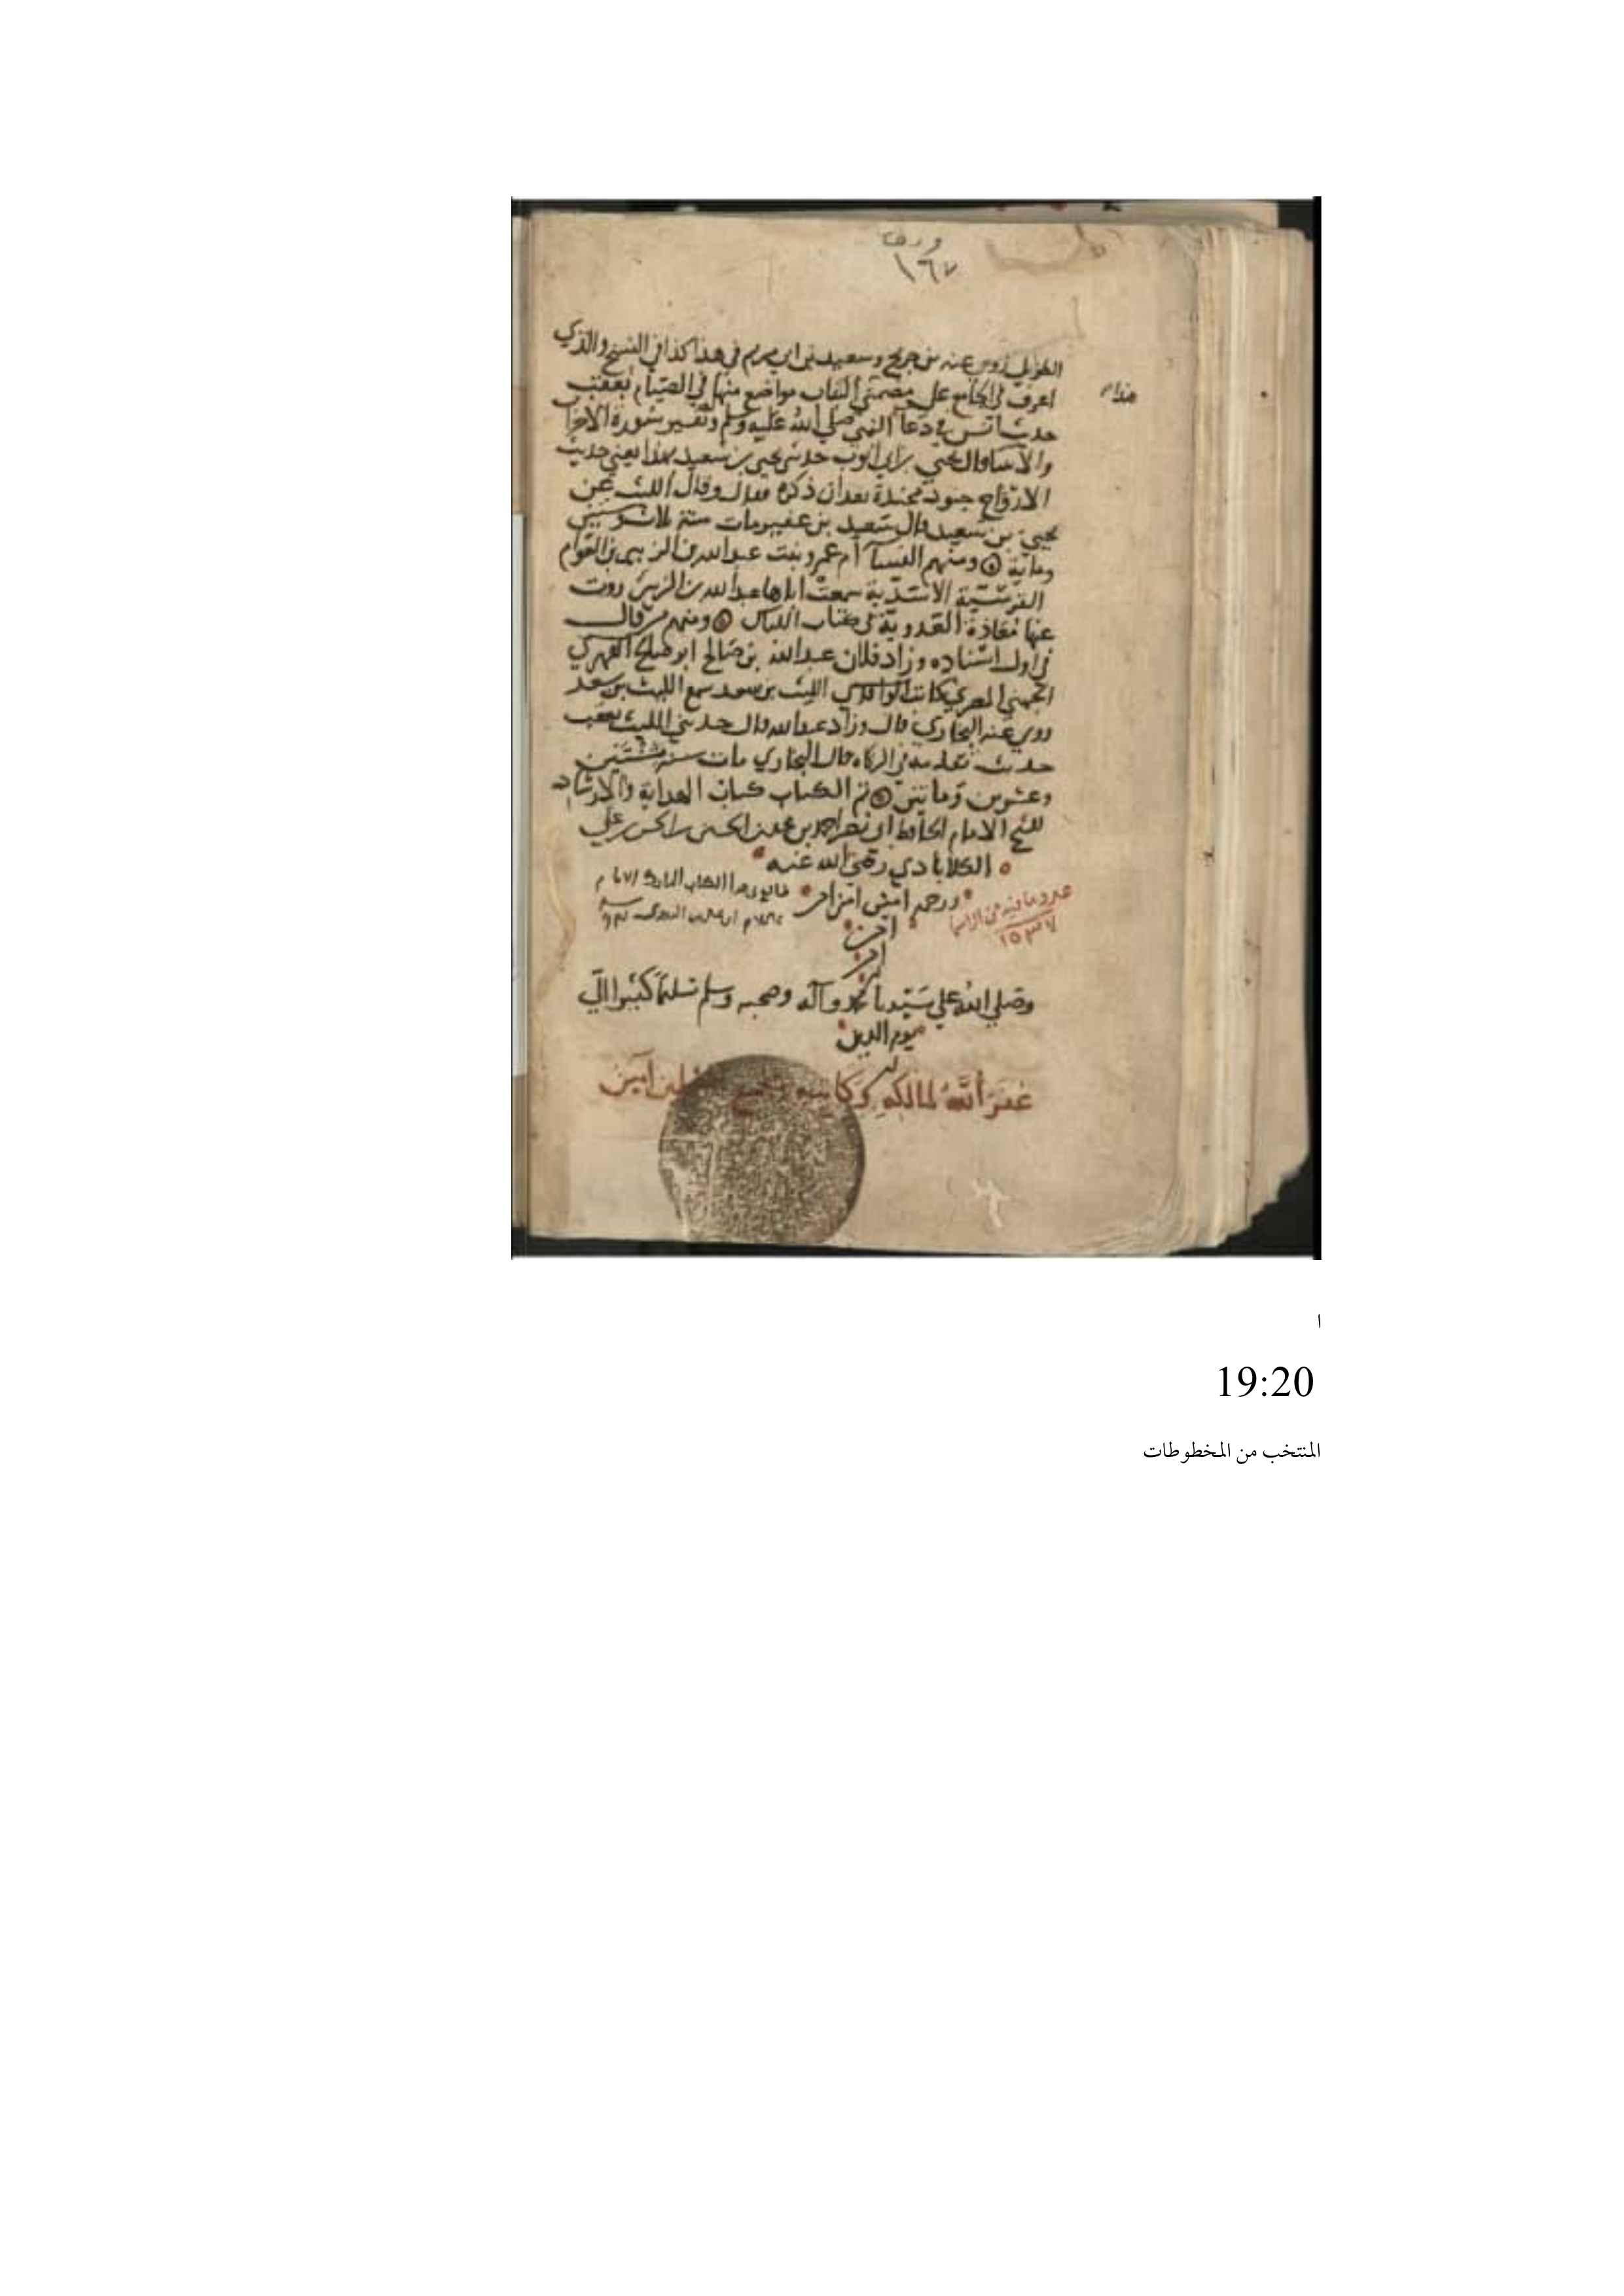 ١٦٧
الطويل روى عنه بن جريج وسعيد بن ابي مريم في هذا كذا في النسخ والذي
اعرف في الجامع على مواضع منها في الصيام بعقب
حديث انس في دعا النبي صلى الله عليه وسلم وتفسير سورة الاحزاب
والانبيا قال يحيى بن ايوب حدثني يحيى بن سعيد بهذا يعني حديث
الارواح جنود مجندة بعد ان ذكره فقال وقال الليث عن
يحيى بن سعيد قال سعيد بن عفير مات سنة ثلاث وستين
وماية ومنهم النسا ام عمرو بنت عبدالله بن الزبير بن العوام
القرشية الاسدية سمعت اباها عبدالله بن الزبير روت
عنها معاذة العدوية في كتاب اللباس ومنهم من قال
في اول اسناده وزاد فلان عبدالله بن صالح ابو صالح الفهري
الجهني المصري كاتب الليث بن سعد سمع الليث بن سعد
روى عنه البخاري قال وزاد عبدالله قال حدثني الليث بعقب
حديث في الزكاه قال البخاري مات سنة ثنتين
وعشرين ومايتين تم الكتاب كتاب الهداية والارشاد
للشيخ الامام الحافظ ابي نصر احمد بن محمد بن الحسين بن الحسن بن علي
الكلاباذي رضي الله عنه
ورحمه امين امين
عدد ما فيه من الاسما
١٥٣٧
امين
وصلى الله على سيدنا محمد وآله وصحبه وسلم تسليما كثيرا الى
يوم الدين
غفر الله لمالكه وكاتبه آمين
ا
19:20
المنتخب من المخطوطات